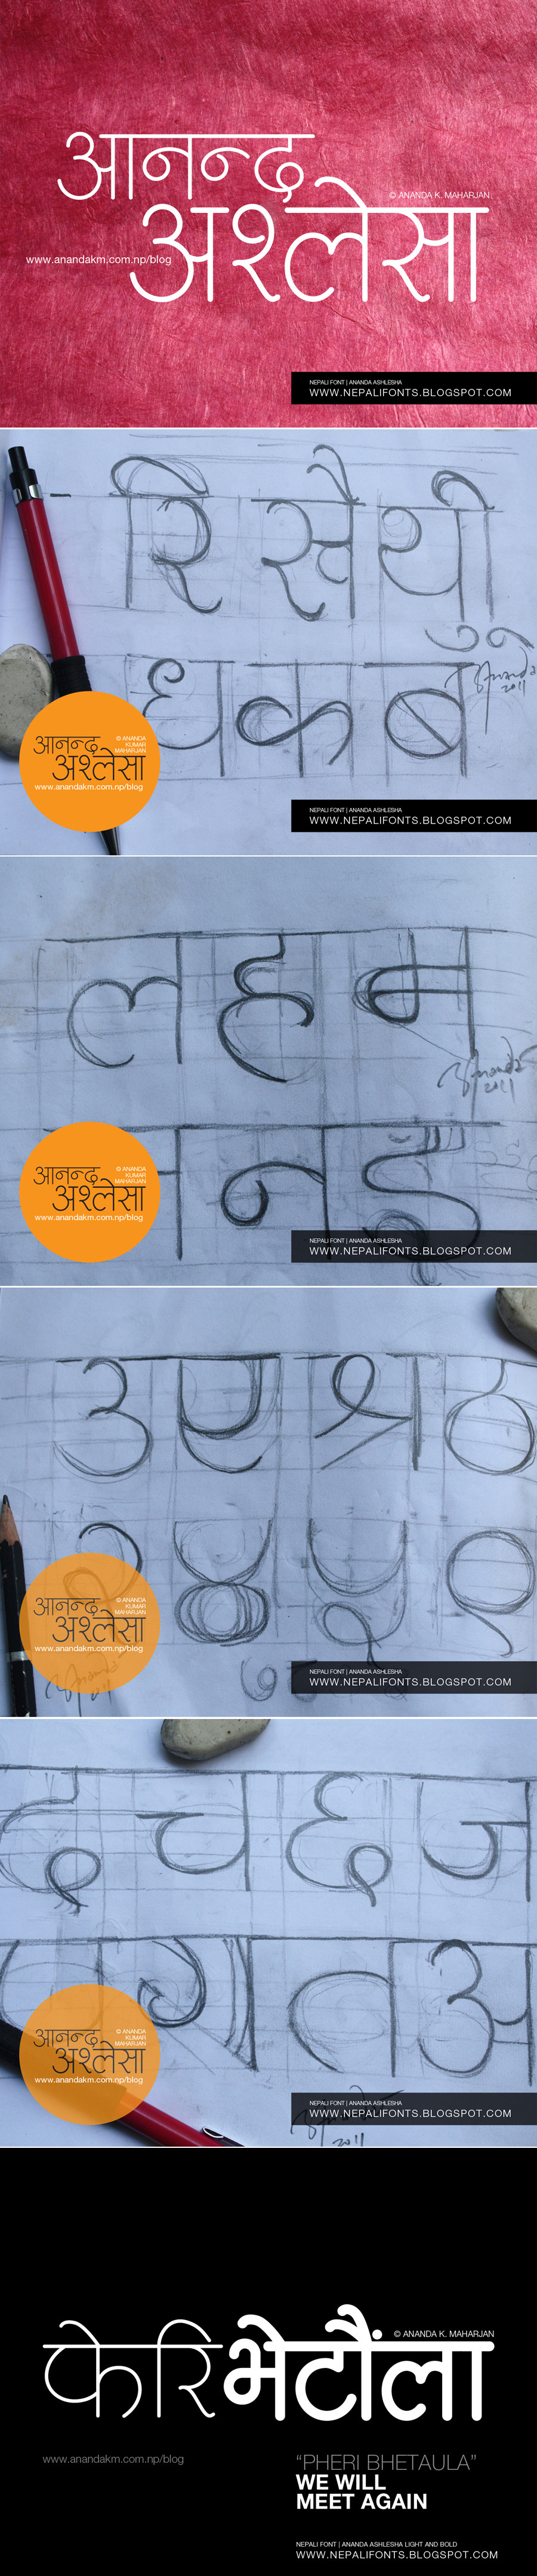 आनन्द
© ANANDA K. MAHARJAN
अश्लेसा
www.anandakm.com.np/blog
NEPALI FONT | ANANDA ASHLESHA
WWW.NEPALIFONTS.BLOGSPOT.COM
रि से यी
७१
Ananda
2011
ह क
आनन्द
© ANANDA
KUMAR
MAHARJAN
अश्लेसा
www.anandakm.com.np/blog
NEPALI FONT | ANANDA ASHLESHA
WWW.NEPALIFONTS.BLOGSPOT.COM
ल ह ब
Ananda
2011
आनन्द
© ANANDA
KUMAR
MAHARJAN
अश्लेसा
www.anandakm.com.np/blog
NEPALI FONT | ANANDA ASHLESHA
WWW.NEPALIFONTS.BLOGSPOT.COM
उ प श्र ठ
२ ४ ५ १
आनन्द
© ANANDA
KUMAR
MAHARJAN
अश्लेसा
www.anandakm.com.np/blog
Ananda
NEPALI FONT | ANANDA ASHLESHA
WWW.NEPALIFONTS.BLOGSPOT.COM
द च छ ज
त अ
आनन्द
© ANANDA
KUMAR
MAHARJAN
अश्लेसा
www.anandakm.com.np/blog
NEPALI FONT | ANANDA ASHLESHA
WWW.NEPALIFONTS.BLOGSPOT.COM
2011
फेरि भेटौंला
© ANANDA K. MAHARJAN
www.anandakm.com.np/blog
“PHERI BHETAULA”
WE WILL
MEET AGAIN
NEPALI FONT | ANANDA ASHLESHA LIGHT AND BOLD
WWW.NEPALIFONTS.BLOGSPOT.COM